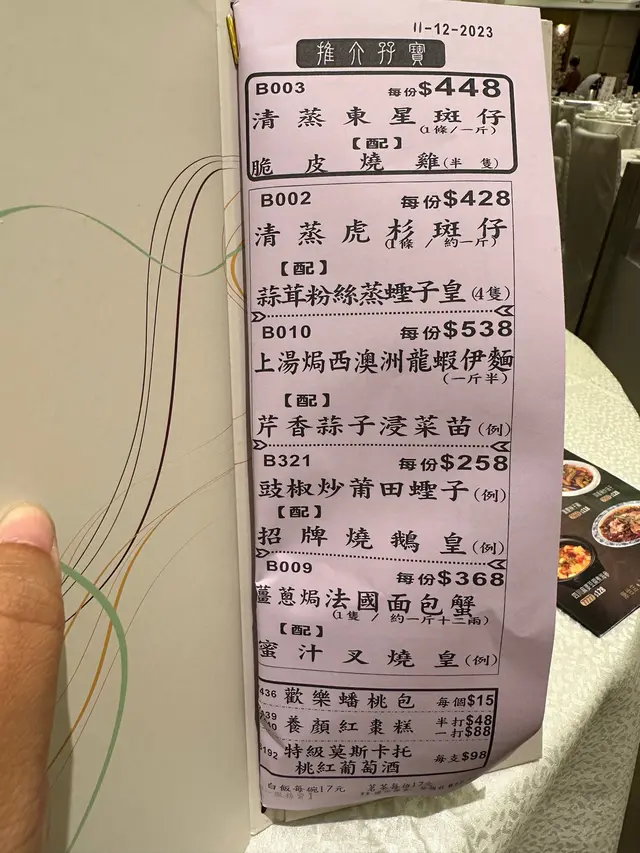 11-12-2023
推介孖寶
B003 每份$448
清蒸東星斑仔
(1條/一斤)
【配】
脆皮燒雞(半隻)
B002 每份$428
清蒸虎杉斑仔
(1條 / 約一斤)
【配】
蒜茸粉絲蒸蟶子皇(4隻)
B010 每份$538
上湯焗西澳洲龍蝦伊麵
(一斤半)
【配】
芹香蒜子浸菜苗(例)
B321 每份$258
豉椒炒莆田蟶子(例)
【配】
招牌燒鵝皇(例)
B009 每份$368
薑蔥焗法國面包蟹
(1隻 / 約一斤十三兩)
【配】
蜜汁叉燒皇(例)
436 歡樂蟠桃包 每個$15
養顏紅棗糕 半打$48
一打$88
192 特級莫斯卡托 每支$98
桃紅葡萄酒
白飯每碗17元